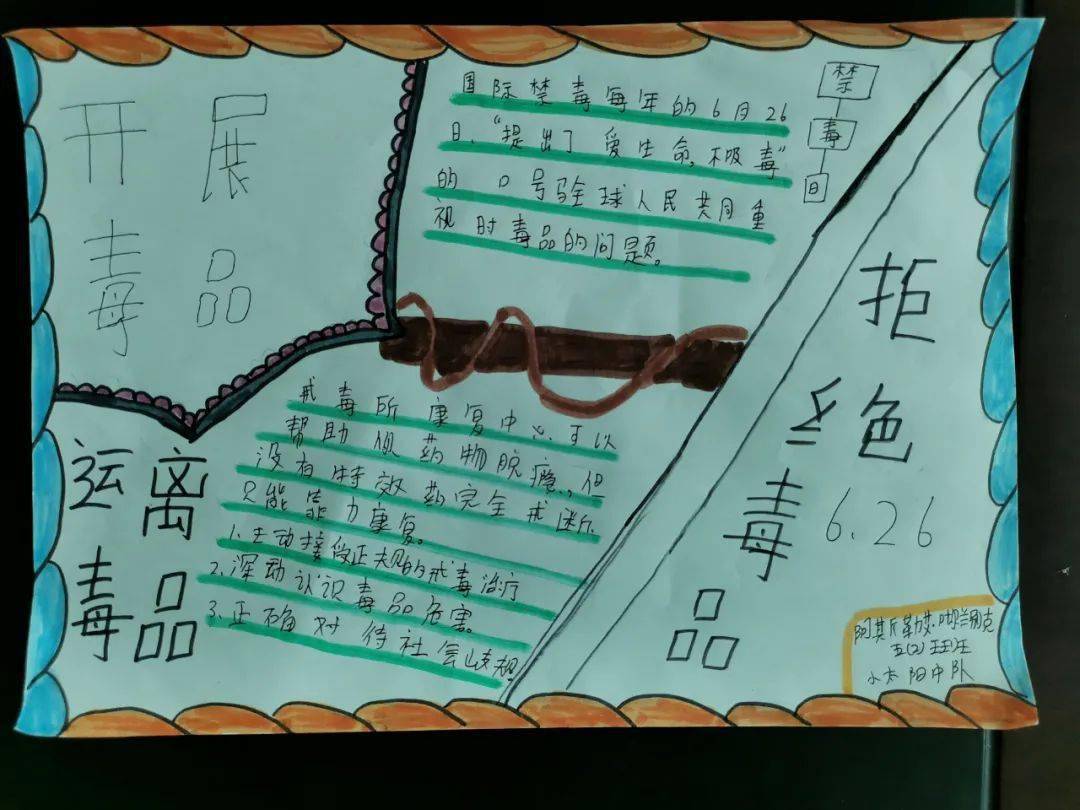 开展
毒品
国际禁毒每年的6月26
日、“提出了爱生命,不吸毒”
的口号 全球人民共同重
视 时毒品的问题。
禁
毒
拒
绝色
毒
品
6.26
运离
毒品
戒毒所康复中心可以
帮助 药物脱瘾,但
没有特效药完全戒断
只能靠力康复。
1.主动接受正规的戒毒治疗
2.深动认识毒品危害。
3.正确对待社会歧视
五(2)
小太阳中队